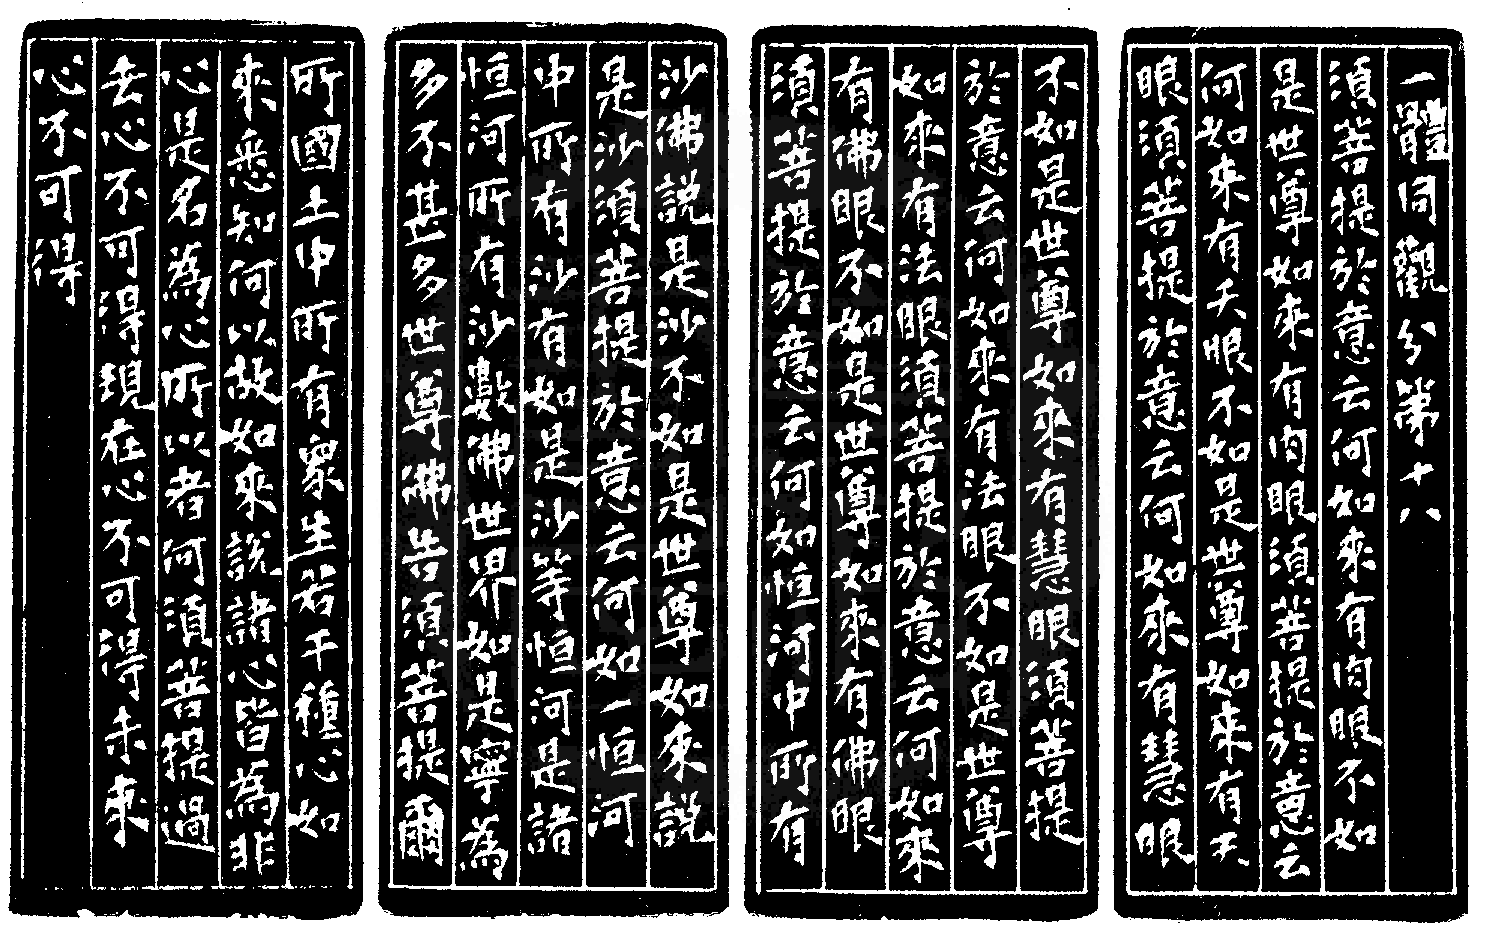 一體同觀分第十八
須菩提於意云何如來有肉眼不如
是世尊如來有肉眼須菩提於意云
何如來有天眼不如是世尊如來有天
眼須菩提於意云何如來有慧眼
不如是世尊如來有慧眼須菩提
於意云何如來有法眼不如是世尊
如來有法眼須菩提於意云何如來
有佛眼不如是世尊如來有佛眼
須菩提於意云何如恒河中所有
沙佛說是沙不如是世尊如來說
是沙須菩提於意云何如一恒河
中所有沙有如是沙等恒河是諸
恒河所有沙數佛世界如是寧為
多不甚多世尊佛告須菩提爾
所國土中所有眾生若干種心如
來悉知何以故如來說諸心皆為非
心是名為心所以者何須菩提過
去心不可得現在心不可得未來
心不可得